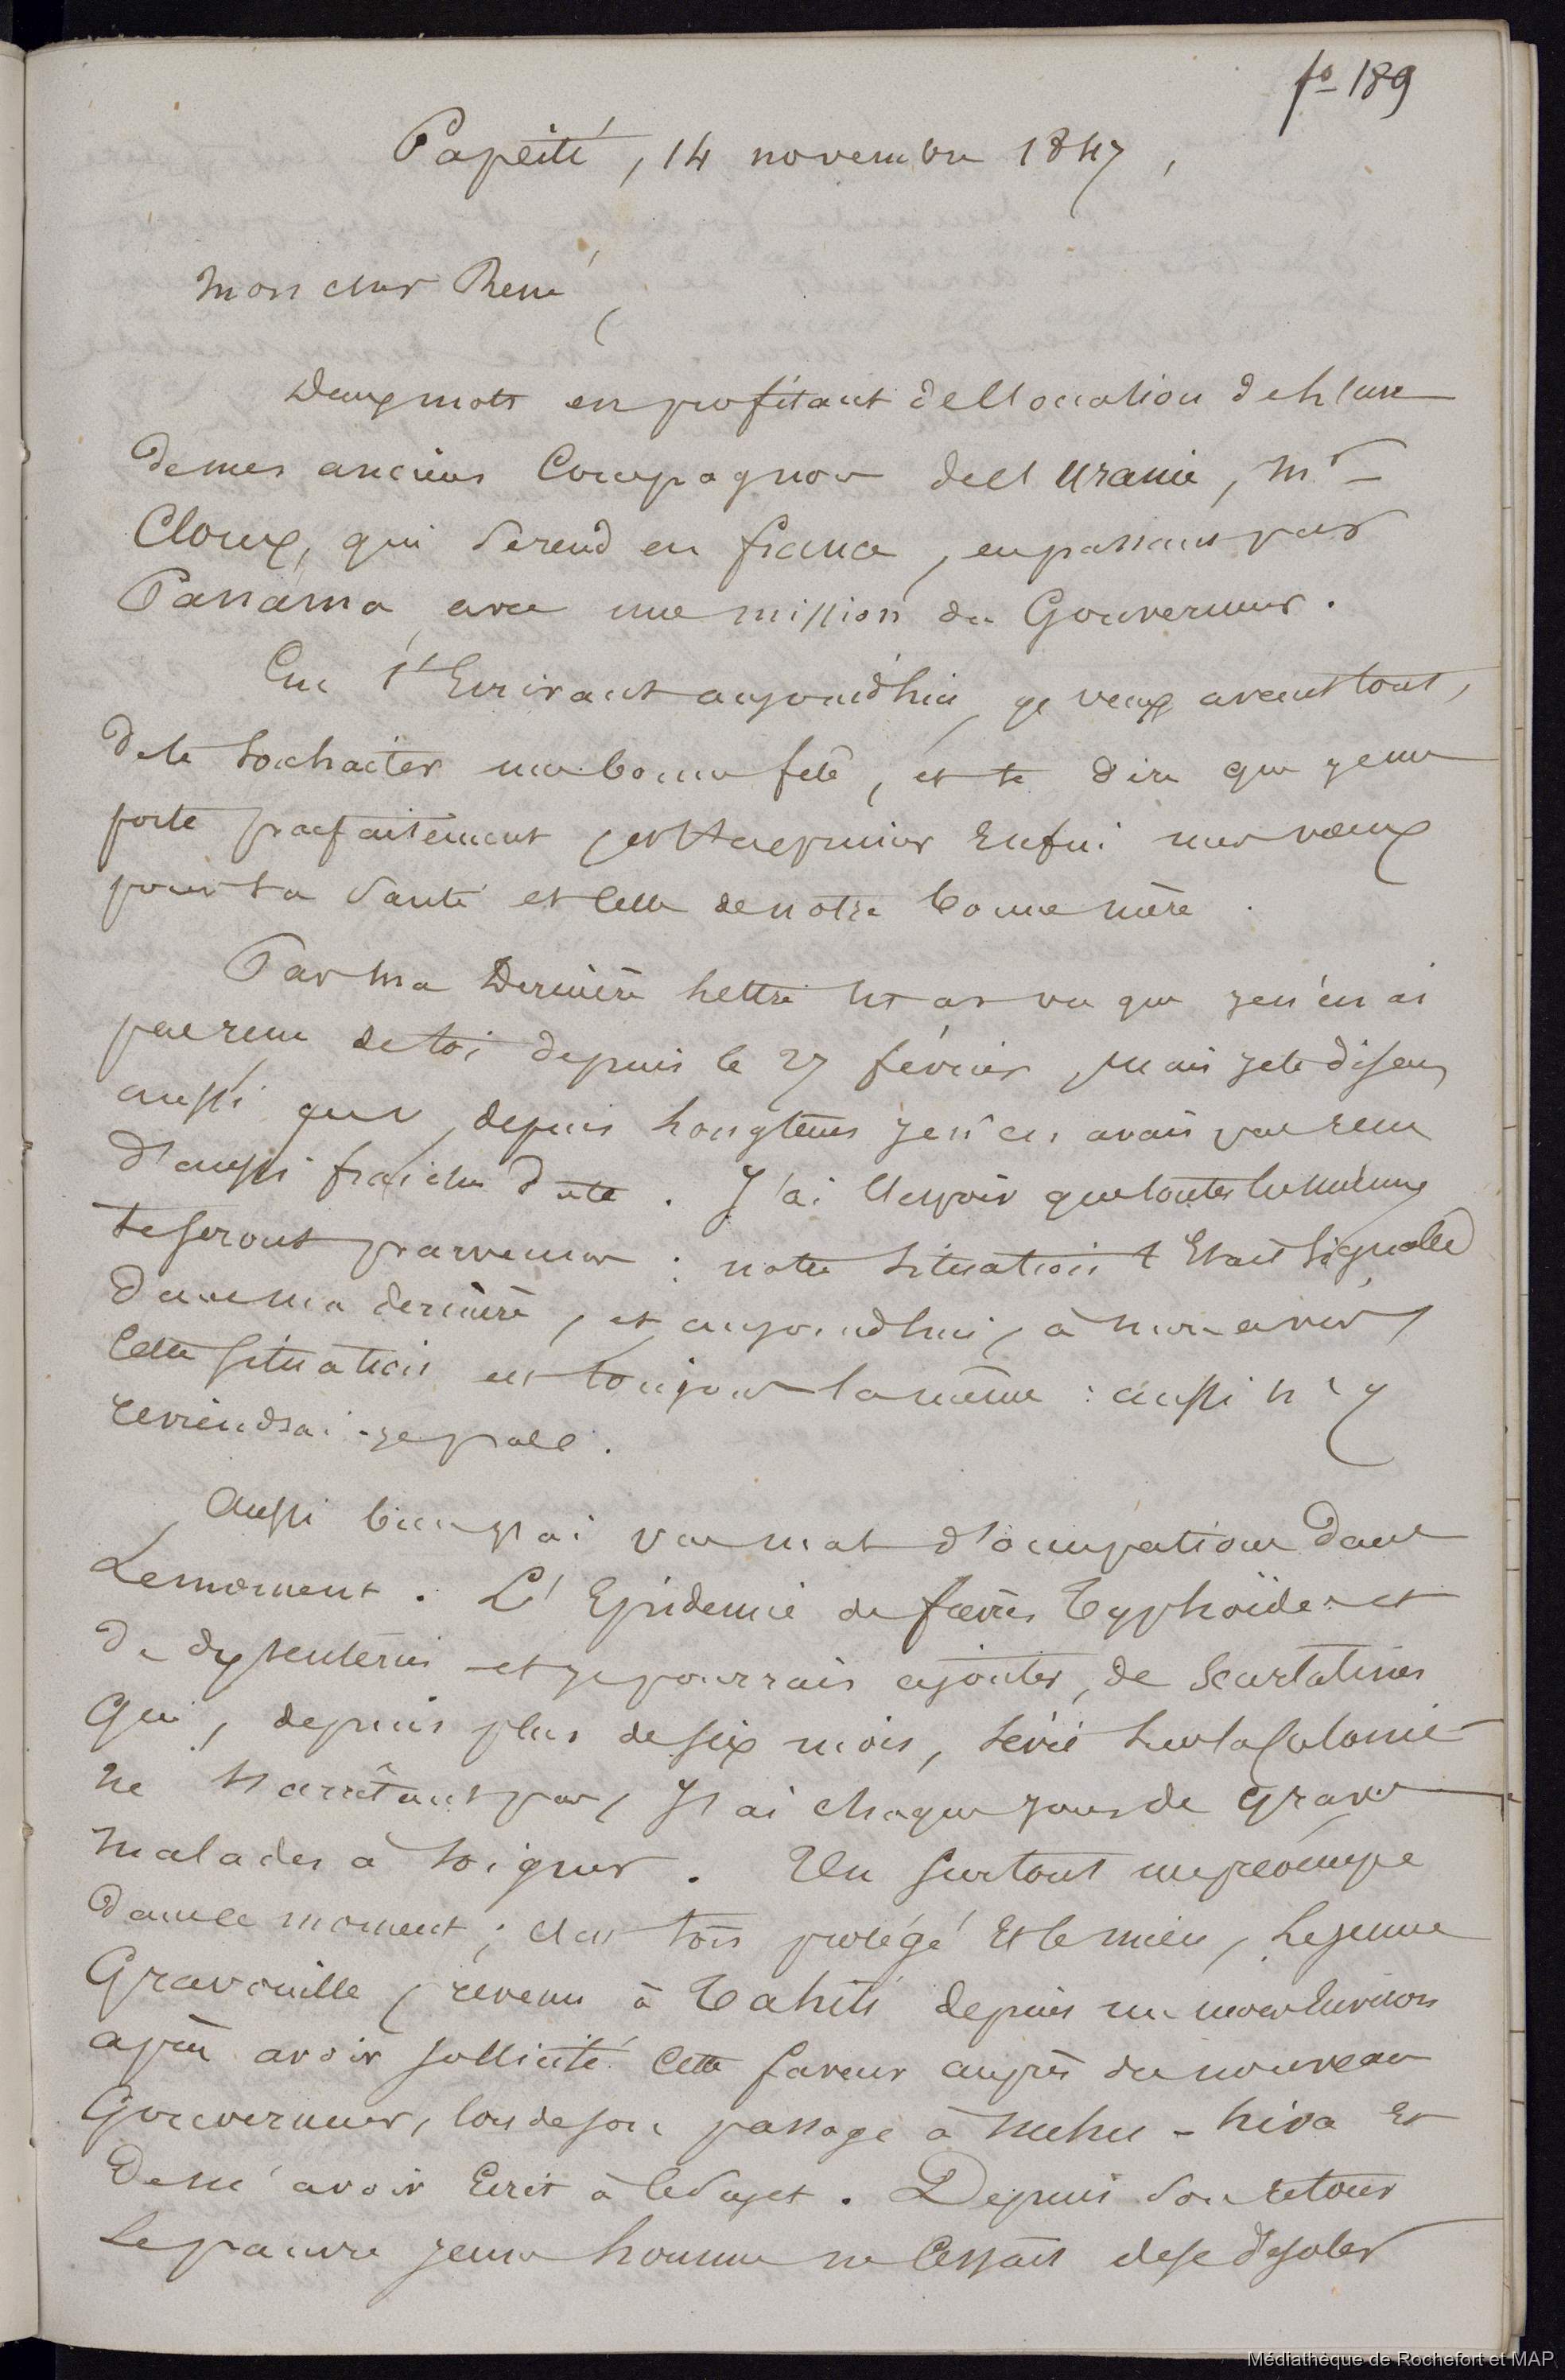 fo 189
Papéité, 14 novembre 1847,
Mon cher René,
Deux mots en profitant de l'occasion de l'un
de mes anciens Compagnons de l'Uranie, Mr
Cloux, qui se rend en france, en passant par
Panama, avec une mission du Gouverneur.
En t'Ecrivant aujourd'hui, je veux avant tout,
de te souhaiter une bonne fête, et te dire que je me
porte parfaitement, et t'exprimer Enfin mes vœux
pour ta Santé et Celle de notre bonne mère.
Par ma Dernière Lettre tu as vu que je n'en ai
pas reçu de toi depuis le 27 février, mais je te disais
aussi que, depuis longtems je n'en avais pas reçu
d'aussi fraiche date. J'ai l'espoir que toutes les miennes
te seront parvenues : notre situation t'Etait Signalée
dans ma dernière, et aujourd'hui, à mon avis,
Cette situation est toujours la même : aussi n'y
reviendrai-je pas.
Aussi bien j'ai pas mal d'occupations dans
Le moment. L'Epidemie de fièvres Typhoïdes et
de dyssenteries et je pourrais ajouter, de Scarlatines
qui, depuis plus de six mois, sévit sur la Colonie
ne s'arrêtant pas, J'ai chaque jour de graves
malades à soigner. Un surtout me préoccupe
dans ce moment ; c'est ton protégé Et le mien, Le jeune
Gravouille, revenu à Tahiti depuis un mois Environ
après avoir sollicité Cette faveur auprès du nouveau
Gouverneur, lors de son passage à Nuhu-hiva Et
de m'avoir Ecrit à Ce Sujet. Depuis Son retour
Le pauvre jeune homme ne Cessait de se désoler
Médiathèque de Rochefort et MAP